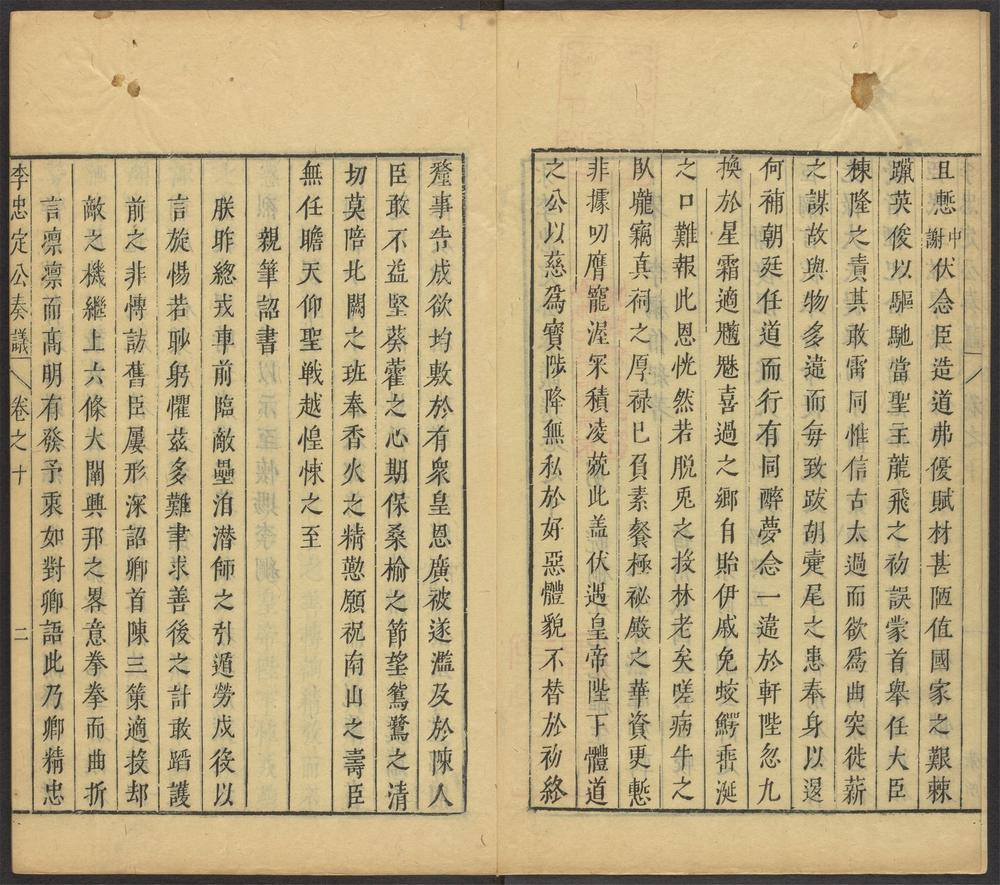 且慙中謝伏念臣造道弗優賦材甚陋值國家之艱棘
躐英俊以驅馳當聖主龍飛之初誤蒙首舉任大臣
棟隆之責其敢雷同惟信古太過而欲爲曲突徙薪
之謀故與物多違而每致跋胡疐尾之患奉身以退
何補朝廷任道而行有同醉夢念一違於軒陛忽九
換於星霜適魑魅喜過之鄉自貽伊戚免蛟鰐垂涎
之口難報此恩恍然若脫兎之投林老矣嗟病牛之
臥壠竊真祠之厚禄已負素餐極祕殿之華資更慙
非據叨膺寵渥冞積凌兢此盖伏遇皇帝陛下體道
之公以慈爲寶陟降無私於好惡體貌不替於初終
釐事告成欲均敷於有衆皇恩廣被遂濫及於陳人
臣敢不益堅葵藿之心期保桑榆之節望鴛鷺之清
切莫陪北闕之班奉香火之精懃願祝南山之壽臣
無任瞻天仰聖戰越惶悚之至
親筆詔書
朕昨總戎車前臨敵壘洎潛師之引遁勞戍役以
言旋惕若眇躬懼茲多難聿求善後之計敢蹈護
前之非愽訪舊臣屢形深詔卿首陳三策適投却
敵之機繼上六條大闡興邦之畧意拳拳而曲折
言凛凛而髙明有發予衷如對卿語此乃卿精忠
李忠定公奏議 卷之十 二